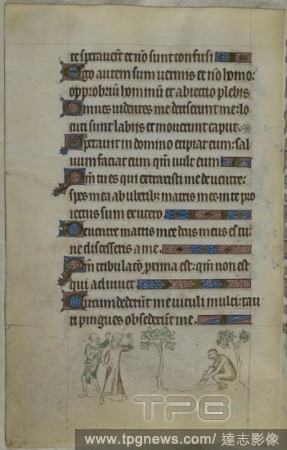 te speraverūt et nō sunt confusi
Ego autem sum vermis et nō homo:
opprobriū hominū et abiectio plebis
Omnes videntes me deriserunt me: lo
cuti sunt labijs et moverunt caput
Speravit in domino eripiat eum: sal
vum faciat eum qm̄ vult eum
Qm̄ tu es qui extraxisti me de ventre:
spes mea ab uberib: matris mee: in te pro
iectus sum ex utero
De ventre matris mee deus meus es tu:
ne discesseris a me
Qm̄ tribulatio proxima est: qm̄ non est
qui adiuvet
Circumdederūt me vituli multi: tau
ri pingues obsederūt me
TPG
www.tpgnews.com/ 達志影像